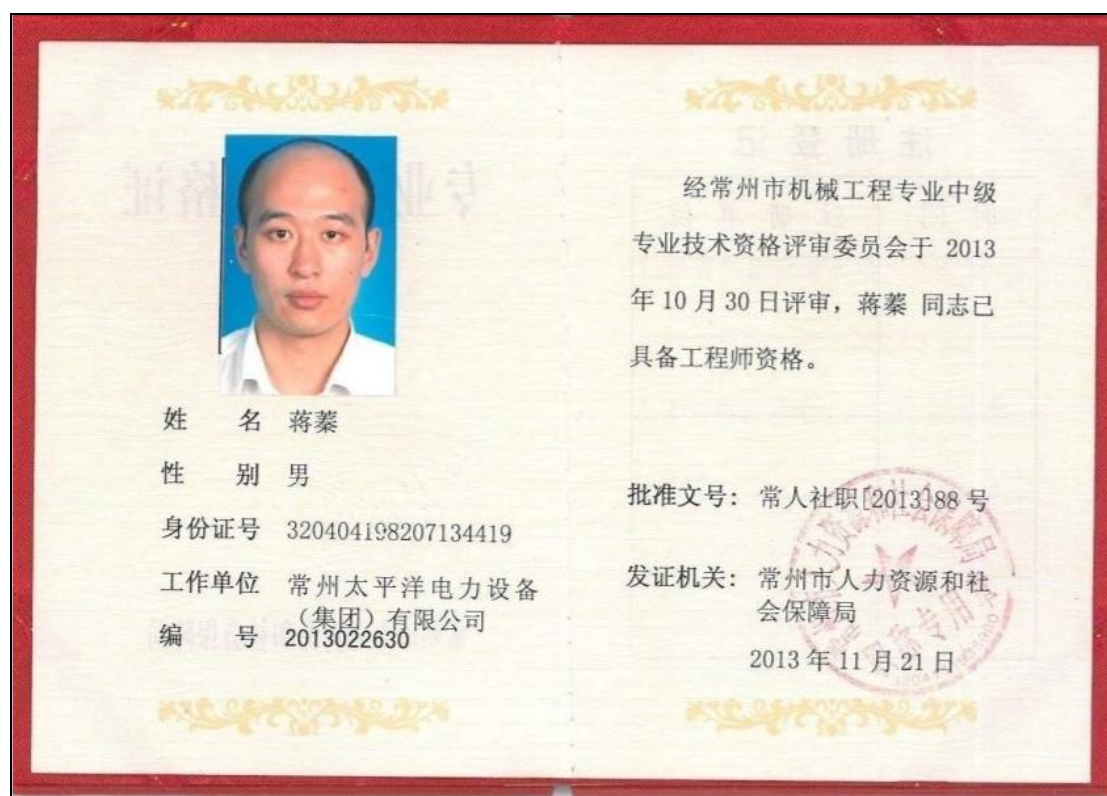 姓 名 蒋蓁
性 别 男
身份证号 320404198207134419
工作单位 常州太平洋电力设备
（集团）有限公司
编 号 2013022630
经常州市机械工程专业中级
专业技术资格评审委员会于 2013
年 10 月 30 日评审，蒋蓁 同志已
具备工程师资格。
批准文号：常人社职[2013]88 号
发证机关：常州市人力资源和社
会保障局
2013 年 11 月 21 日